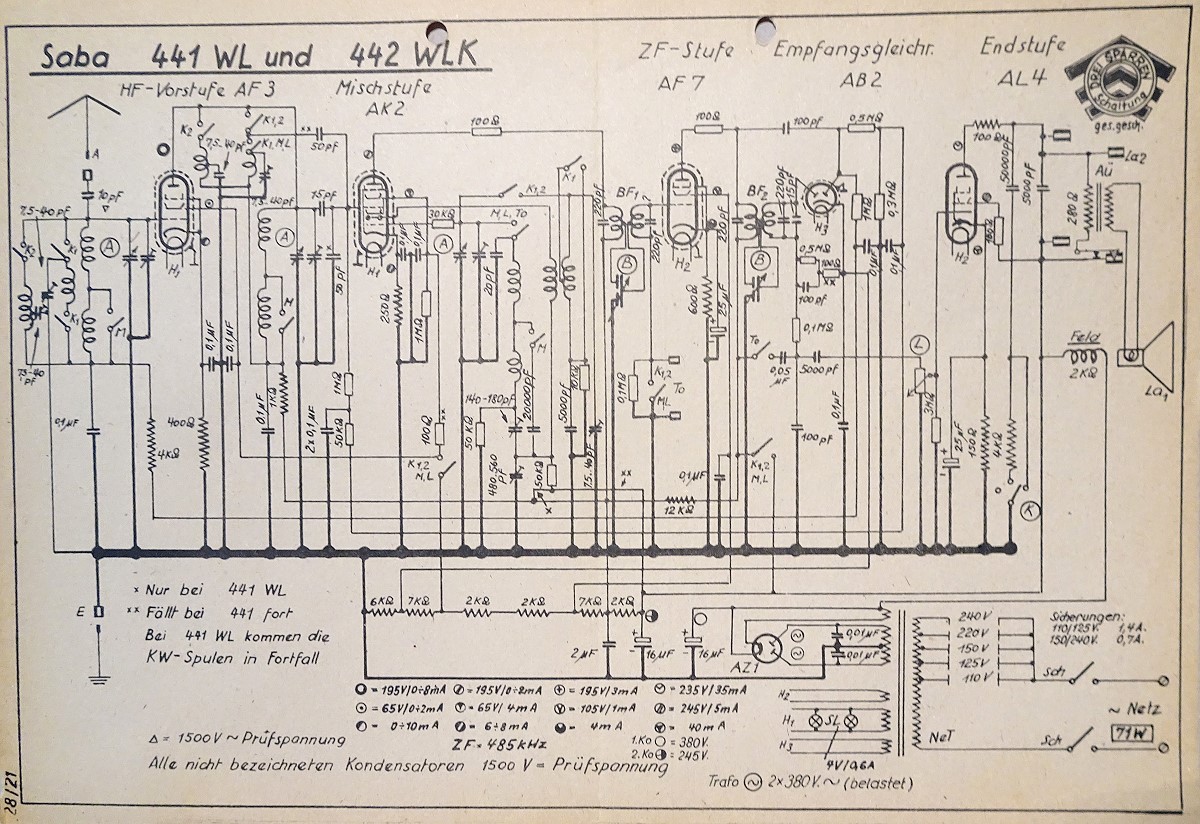 Saba 441 WL und 442 WLK
ZF-Stufe Empfangsgleichr. Endstufe
AF7 AB2 AL4
DREI SPARREN
Schaltung
ges.gesch.
HF-Vorstufe AF3
Mischstufe
AK2
A
10pf
7,5-40pf
K2
K1,2
7,5-40pf
K1,M,L
xx
50pf
7,5-40pf
15pf
A
A
H1
K2
K1
K1
M
7,5-40
pf
0,1µF
4KΩ
400Ω
0,1µF
0,1µF
0,1µF
1KΩ
M
2x0,1µF
50pf
1MΩ
50KΩ
100Ω
H1
30KΩ
A
0,1µF
0,1µF
250Ω
1MΩ
100Ω
xx
K1,2
M,L
K1,2
K1
M,L,To
20pf
M
140-180pf
20000pf
50KΩ
480,560
pf
50KΩ
x
5000pf
10KΩ
7,5-40pf
xx
220pf
BF1
220pf
B
H2
100Ω
220pf
600Ω
25µF
0,1MΩ
K1,2
ML
To
0,1µF
12KΩ
BF2
B
220pf
15pf
H3
100pf
0,5MΩ
1MΩ
0,3MΩ
0,5MΩ
100Ω
xx
100pf
0,1MΩ
0,1µF
0,1µF
To
0,05
µF
5000pf
100pf
0,1µF
K1,2
M,L
L
3MΩ
25µF
150Ω
4KΩ
K
H2
100Ω
50000pf
5000pf
La2
Aü
280Ω
Feld
2KΩ
La1
E
x Nur bei 441 WL
xx Fällt bei 441 fort
Bei 441 WL kommen die
KW-Spulen in Fortfall
6KΩ 7KΩ 2KΩ 2KΩ 7KΩ 2KΩ
2µF
16µF
16µF
AZ1
0,01µF
0,01µF
240V
220V
150V
125V
110V
Sicherungen:
110/125V. 1,4A.
150/240V. 0,7A.
Sch
Sch
~ Netz
71W
NeT
H2
H1
SL
H3
4V/0,6A
= 195V/0÷8mA = 195V/0÷2mA = 195V/3mA = 235V/35mA
= 65V/0÷2mA = 65V/4mA = 105V/1mA = 245V/5mA
= 0÷10mA = 6÷8mA = 4mA = 40mA
△ = 1500V ~ Prüfspannung
ZF = 485kHz
1.Ko = 380V.
2.Ko = 245V.
Alle nicht bezeichneten Kondensatoren 1500 V = Prüfspannung
Trafo 2x380V. ~ (belastet)
28/21